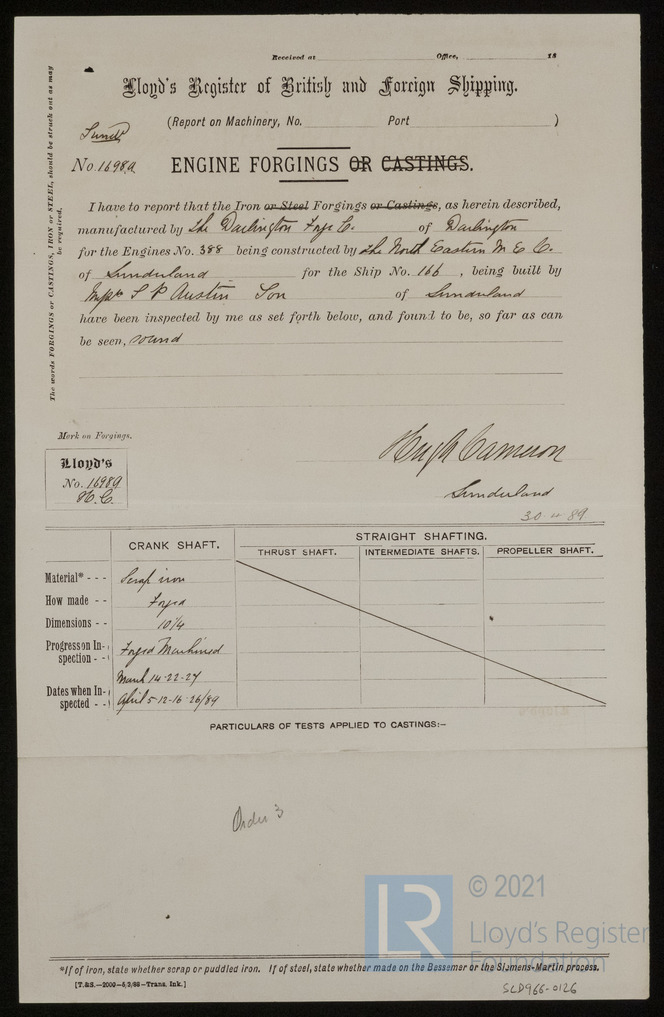 Received at Office, 18
Lloyd's Register of British and Foreign Shipping.
(Report on Machinery, No. Port )
Sund
No. 1698a ENGINE FORGINGS OR CASTINGS.
The words FORGINGS or CASTINGS, IRON or STEEL, should be struck out as may be required.
I have to report that the Iron or Steel Forgings or Castings, as herein described,
manufactured by the Darlington Forge Co. of Darlington
for the Engines No. 388 being constructed by the North Eastern M E Co.
of Sunderland for the Ship No. 166 , being built by
S P Austin Son of Sunderland
have been inspected by me as set forth below, and found to be, so far as can
be seen, sound
Mark on Forgings.
Hugh Cameron
Lloyd's
No. 1698a
H.C.
Sunderland
30 4 89
CRANK SHAFT. STRAIGHT SHAFTING.
THRUST SHAFT. INTERMEDIATE SHAFTS. PROPELLER SHAFT.
Material* - - - Scrap iron
How made - - Forged
Dimensions - - 10 1/4
Progress on In-
spection - - Forged Machined
Dates when In-
spected - - March 14-22-27
April 5-12-16-26/89
PARTICULARS OF TESTS APPLIED TO CASTINGS:—
Order 3
© 2021
LR
Lloyd's Register
Foundation
*If of iron, state whether scrap or puddled iron. If of steel, state whether made on the Bessemer or the Siemens-Martin process.
[T.&S.—2000—5/3/88—Trans. Ink.]
SLD966-0126